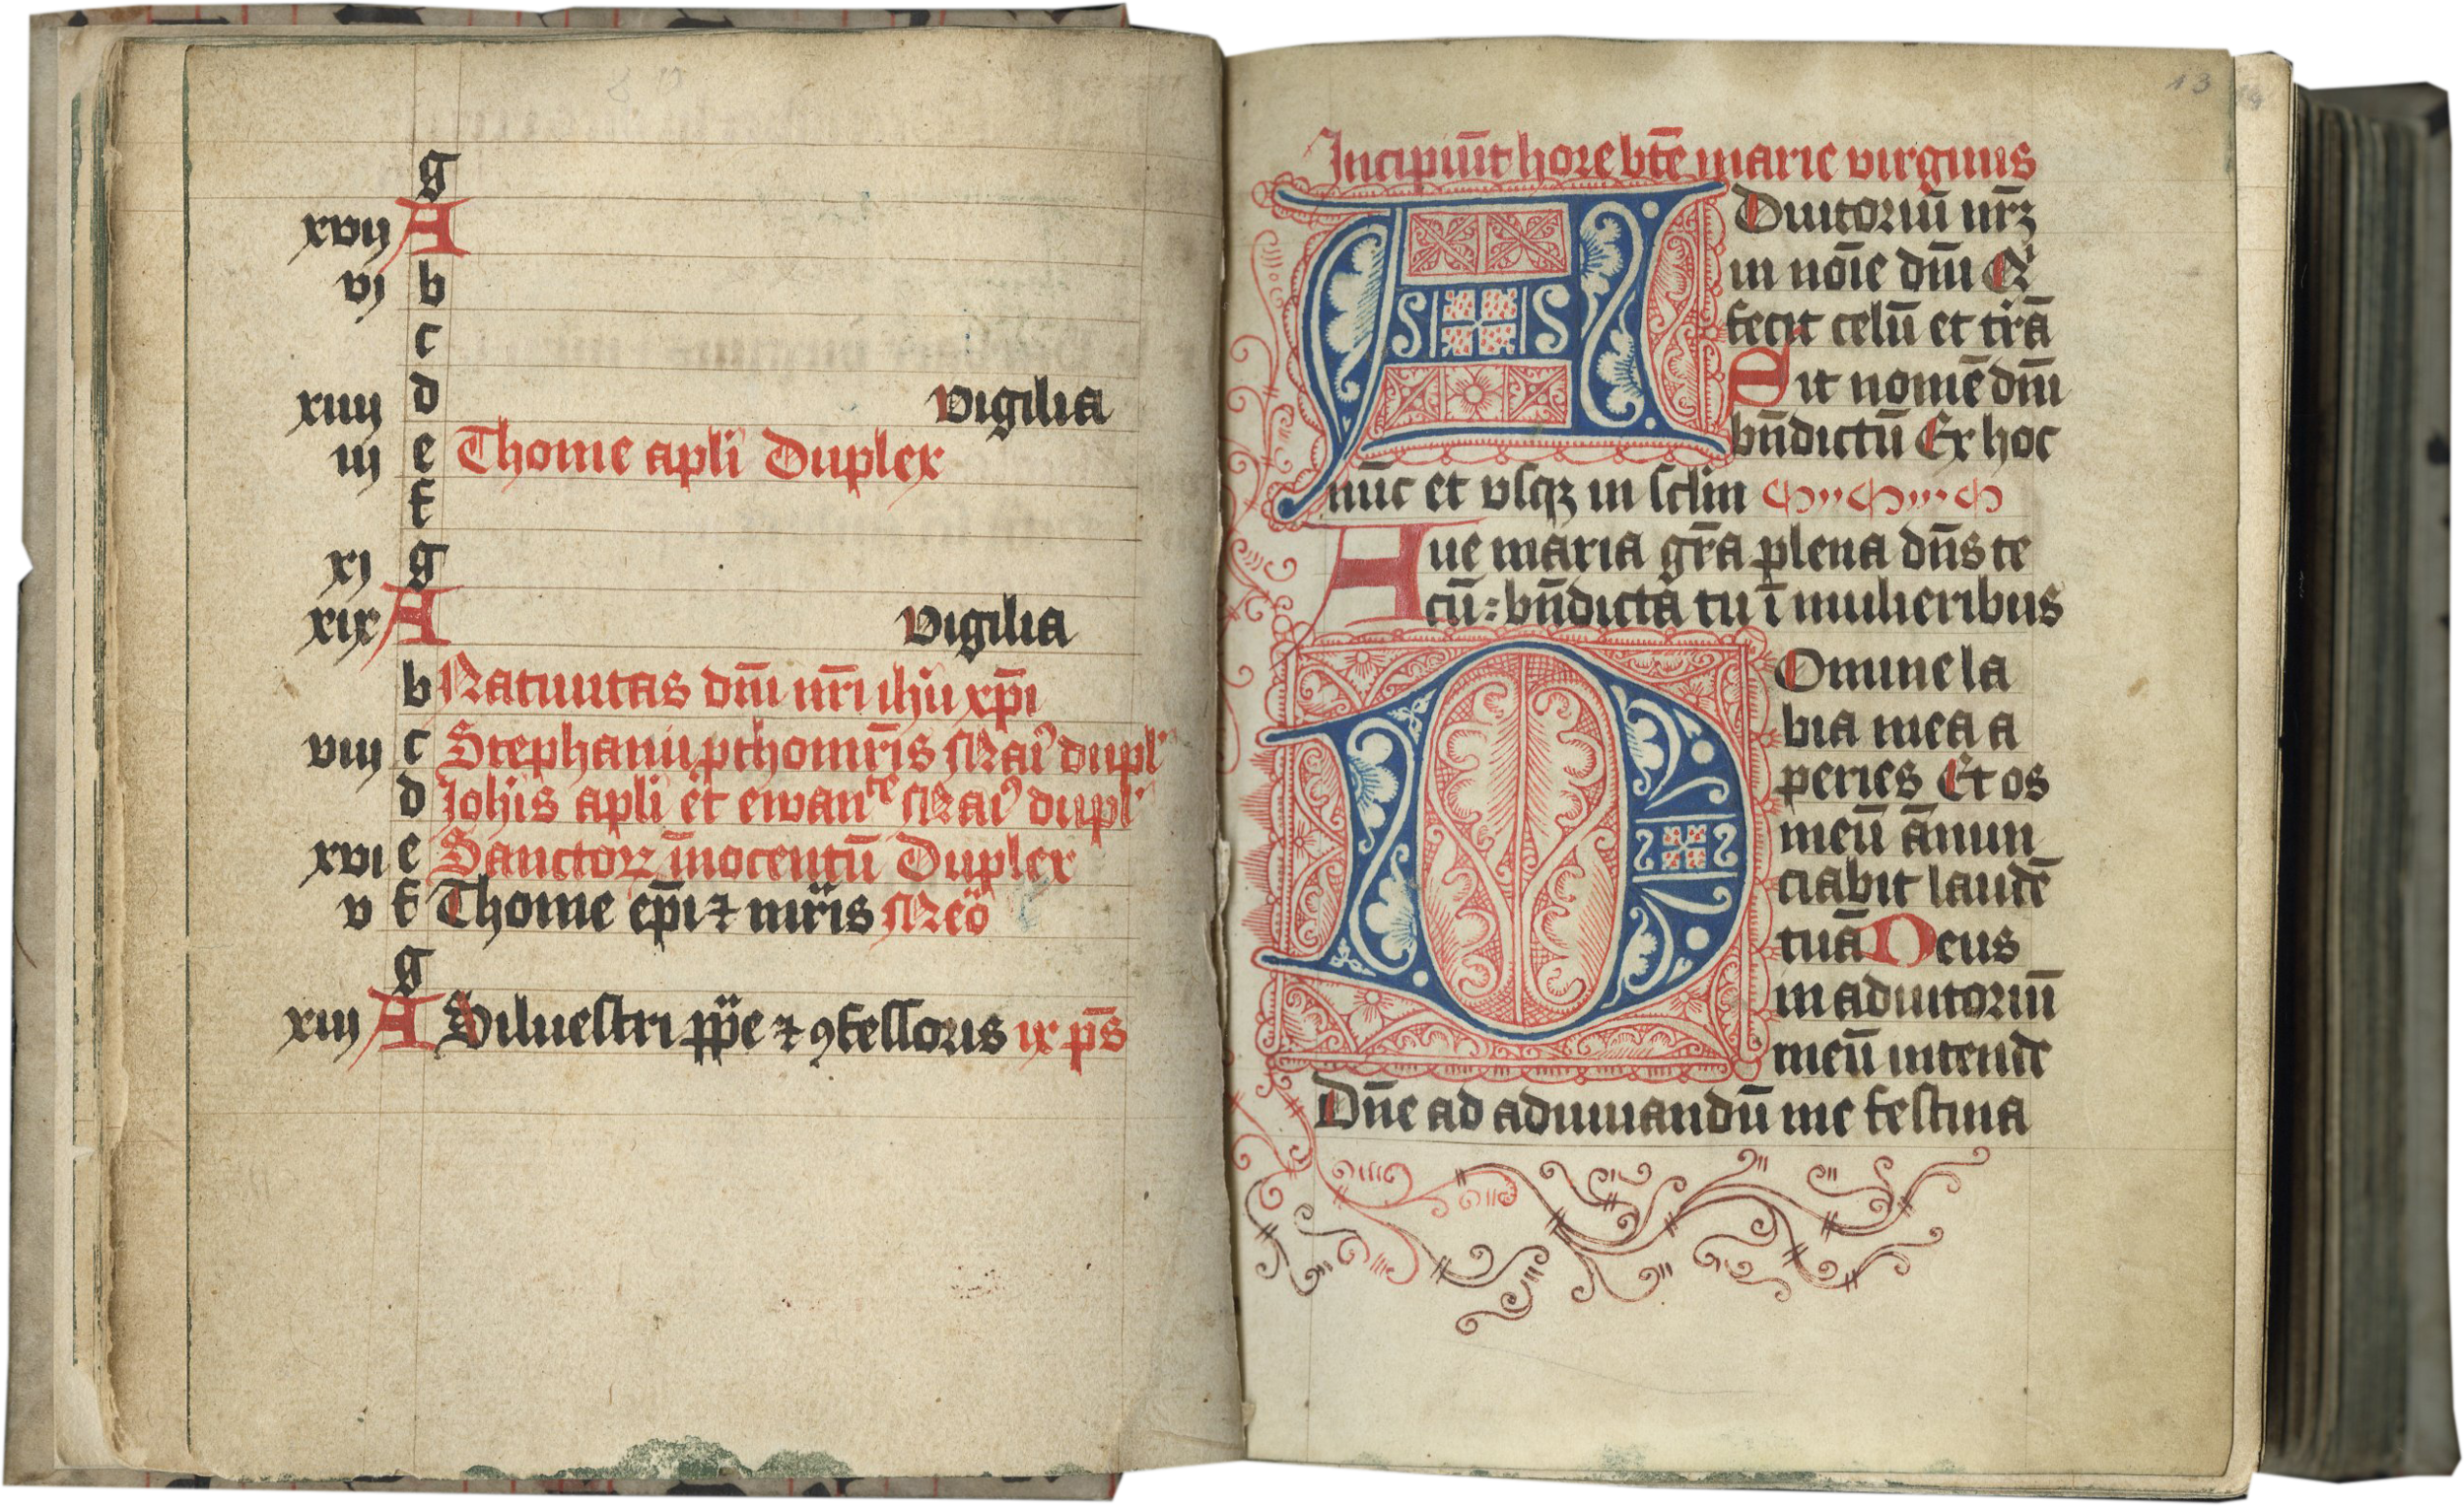 g
xvij A
vj b
c
xiiij d vigilia
iij e Thome apli Duplex
f
xj g
xix A vigilia
b Natiuitas dm̄i nr̄i ihū xp̄i
viij c Stephani pthomr̄is Maiꝰ dupl'
d Johīs apli et ewanᵗᵉ Maiꝰ dupl'
xvi e Sanctoꝝ īnocentū Duplex
v f Thome ep̄i ⁊ mr̄is Meō
g
xiij A Siluestri pp̄e ⁊ ꝯfessoris ix ps̄
13
Incipiūt hore bt̄e marie virginis
ADiutoriū nr̄ꝫ
in noīe dm̄i Qⁱ
fecit celū et tr̄ā
Sit nomē dm̄i
bn̄dictū Ex hoc
nūc et vsqꝫ in sclm
Aue maria gr̄a plena dn̄s te
cū : bn̄dicta tu ī mulieribus
DOmine la
bia mea a
peries Et os
meū ānun
ciabit laudē
tuā Deus
in adiutoriū
meū intende
Dn̄e ad adiuuandū me festina